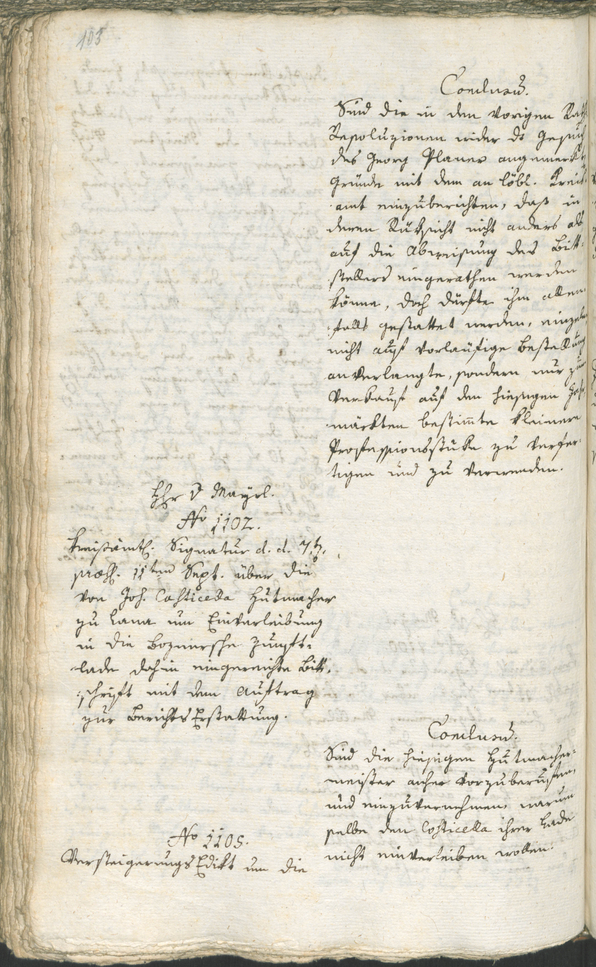 103
Conclusũ.
Sind die in den vorigen Raths
Resoluzionen wider ds Gesuch
des Georg Planer angemerkte
Gründe mit dem an löbl. Kreis-
amt einzuberichten, daß in
deren Rüksicht nicht anders als
auf die Abweisung des Bitt-
stellers eingerathen werden
könne, doch dürfte ihm allen-
falls gestattet werden, einzelne
nicht auf vorläufige Bestellung
anverlangte, sondern nur zum
Verkauf auf den hiesigen Jahr-
märkten bestim̄te kleinere
Professionsstüke zu verfer-
tigen und zu verwenden.
Hr D Mayrl.
No 1107.
Kreisämtl. Signatur d. d. 7t.
præs. 11ten Sept. über die
von Joh. Costicella Hutmacher
zu Lana um Einverleibung
in die Boznersche Zunft-
lade dahin eingereichte Bitt-
schrift mit dem Auftrag
zur BerichtsErstattung.
Conclusũ.
Sind die hiesigen Hutmacher-
meister anher vorzuberuffen,
und einzuvernehmen, warum
selbe den Costicella ihrer Lade
nicht einverleiben wollen.
No 1108.
VersteigerungsEdikt um die